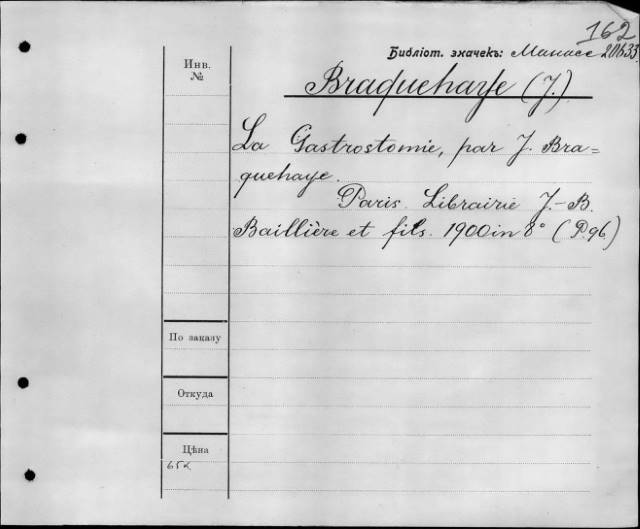 162
Библіот. значекъ: Манасе 20633
Инв.
№
Braquehaye (J.)
La Gastrostomie, par J. Bra=
quehaye.
Paris. Librairie J.-B.
Baillière et fils. 1900 in 8° (P. 96)
По заказу
Откуда
Цѣна
65к